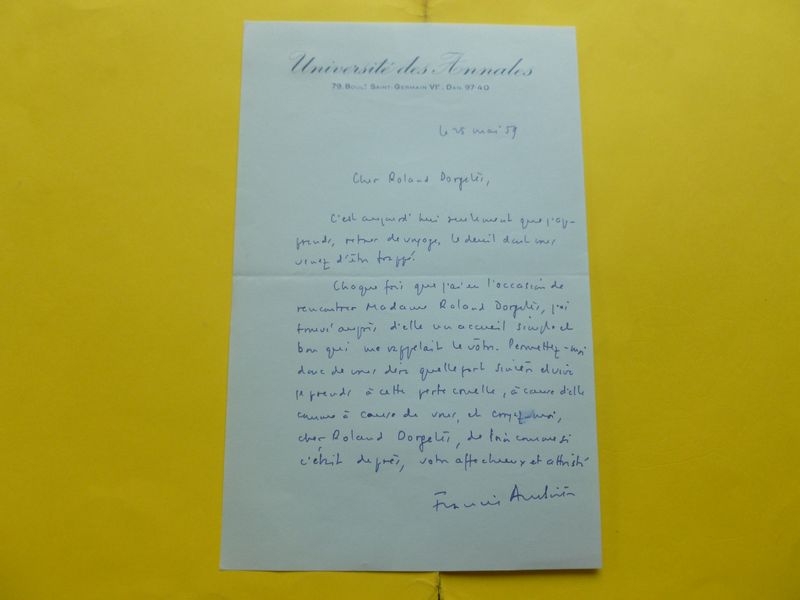 Université des Annales
79, Boulᵗ Saint-Germain VIᵉ. Dan 97-40
le 25 mai 59
Cher Roland Dorgelès,
C'est aujourd'hui seulement que j'ap-
prends, retour de voyage, le deuil dont vous
venez d'être frappé.
Chaque fois que j'ai eu l'occasion de
rencontrer Madame Roland Dorgelès, j'ai
trouvé auprès d'elle un accueil simple et
bon qui me rappelait le vôtre. Permettez-moi
donc de vous dire quelle part sincère et vive
je prends à cette perte cruelle, à cause d'elle
comme à cause de vous, et croyez-moi,
cher Roland Dorgelès, de loin comme si
c'était de près, votre affectueux et attristé
Francis Ambrière